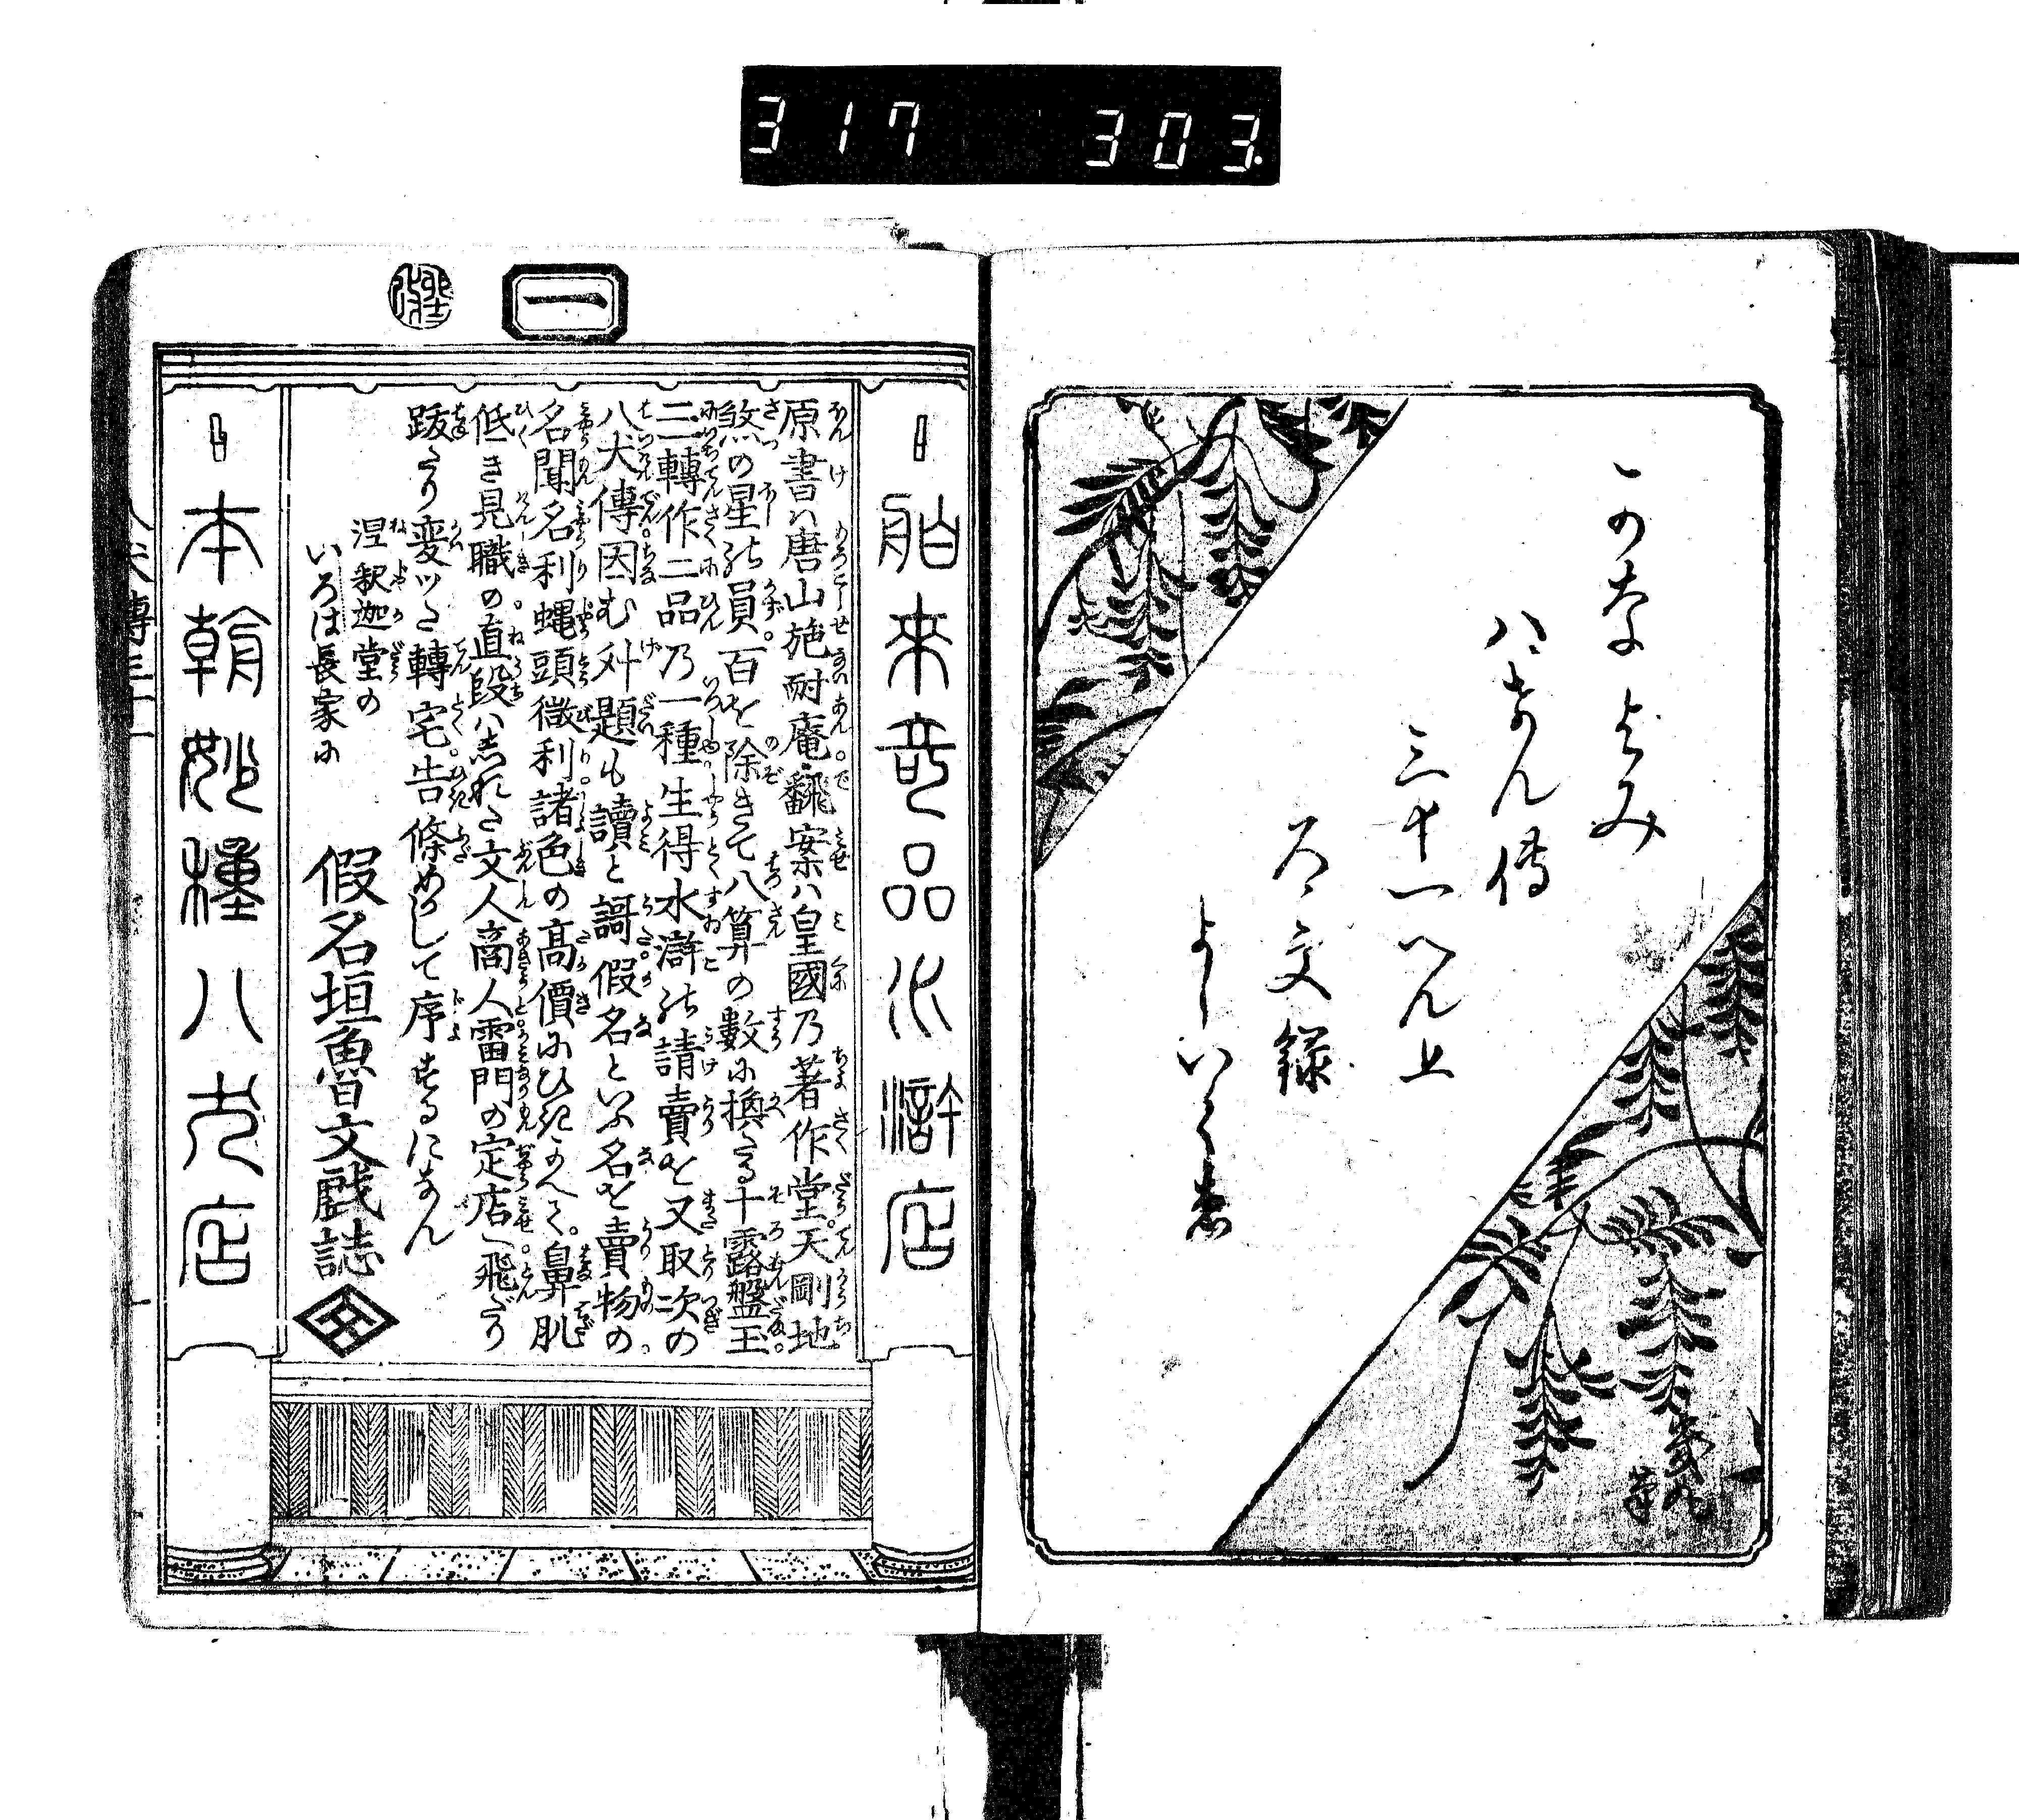 317 303.
かなよみ
八けん傳
三十一へん上
ろ文録
よしいく画
一
舶來奇品水滸店
原書ハ唐山施耐庵。翻案ハ皇國乃著作堂。天剛地
煞の星の員。百を除きて八算の數に換る十露盤玉。
二轉作二品乃一種生得水滸の請賣を又取次の
八犬傳。因む外題も讀と謌。假名といふ名を賣物の
名聞名利。蝿頭微利。諸色の高價にひきかへて。鼻肌
低き見職の。直段ハ忘れた文人商人。雷門の定店へ飛だり
跋たり変ツた轉宅告條めかして序するになん
涅釈迦堂の
いろは長家に
假名垣魯文戯誌
本朝妙種八犬店